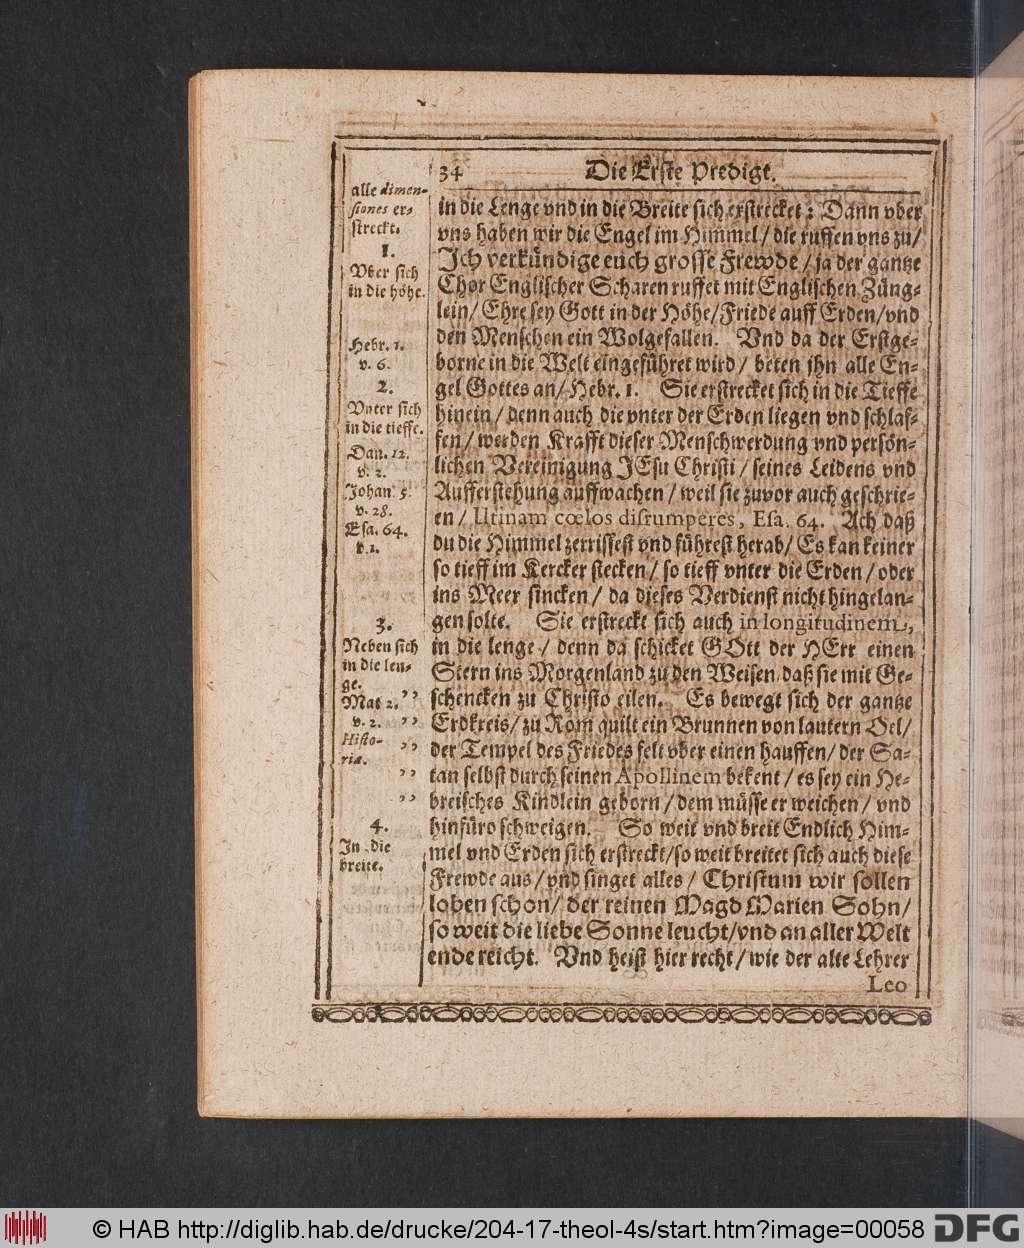 34 Die Erste Predigt.
alle dimen-
siones er-
streckt.
1.
Vber sich
in die höhe.
Hebr. 1.
v. 6.
2.
Vnter sich
in die tieffe.
Dan. 12.
v. 2.
Johan. 5.
v. 28.
Esa. 64.
v. 1.
3.
Neben sich
in die len-
ge.
Mat 2. ,,
v. 2. ,,
Histo- ,,
riæ.
,,
,,
4.
In die
breite.
in die Lenge vnd in die Breite sich erstrecket: Dann vber
vns haben wir die Engel im Himmel / die ruffen vns zu /
Ich verkündige euch grosse Frewde / ja der gantze
Chor Englischer Scharen ruffet mit Englischen Züng-
lein / Ehre sey Gott in der Höhe / Friede auff Erden / vnd
den Menschen ein Wolgefallen. Vnd da der Erstge-
borne in die Welt eingeführet wird / beten jhn alle En-
gel Gottes an / Hebr. 1. Sie erstrecket sich in die Tieffe
hinein / denn auch die vnter der Erden liegen vnd schlaf-
fen / werden Krafft dieser Menschwerdung vnd persön-
lichen Vereinigung JEsu Christi / seines Leidens vnd
Aufferstehung auffwachen / weil sie zuvor auch geschrie-
en / Utinam cœlos disrumperes, Esa. 64. Ach daß
du die Himmel zerrissest vnd führest herab / Es kan keiner
so tieff im Kercker stecken / so tieff vnter die Erden / oder
ins Meer sincken / da dieses Verdienst nicht hingelan-
gen solte. Sie erstreckt sich auch in longitudinem,
in die lenge / denn da schicket GOtt der HErr einen
Stern ins Morgenland zu den Weisen daß sie mit Ge-
schencken zu Christo eilen. Es bewegt sich der gantze
Erdkreis / zu Rom quilt ein Brunnen von lautern Oel /
der Tempel des Friedes felt vber einen hauffen / der Sa-
tan selbst durch seinen Apollinem bekent / es sey ein He-
breisches Kindlein geborn / dem müsse er weichen / vnd
hinfüro schweigen. So weit vnd breit Endlich Him-
mel vnd Erden sich erstreckt / so weit breitet sich auch diese
Frewde aus / vnd singet alles / Christum wir sollen
loben schon / der reinen Magd Marien Sohn /
so weit die liebe Sonne leucht / vnd an aller Welt
ende reicht. Vnd heist hier recht / wie der alte Lehrer
Leo
© HAB http://diglib.hab.de/drucke/204-17-theol-4s/start.htm?image=00058 DFG